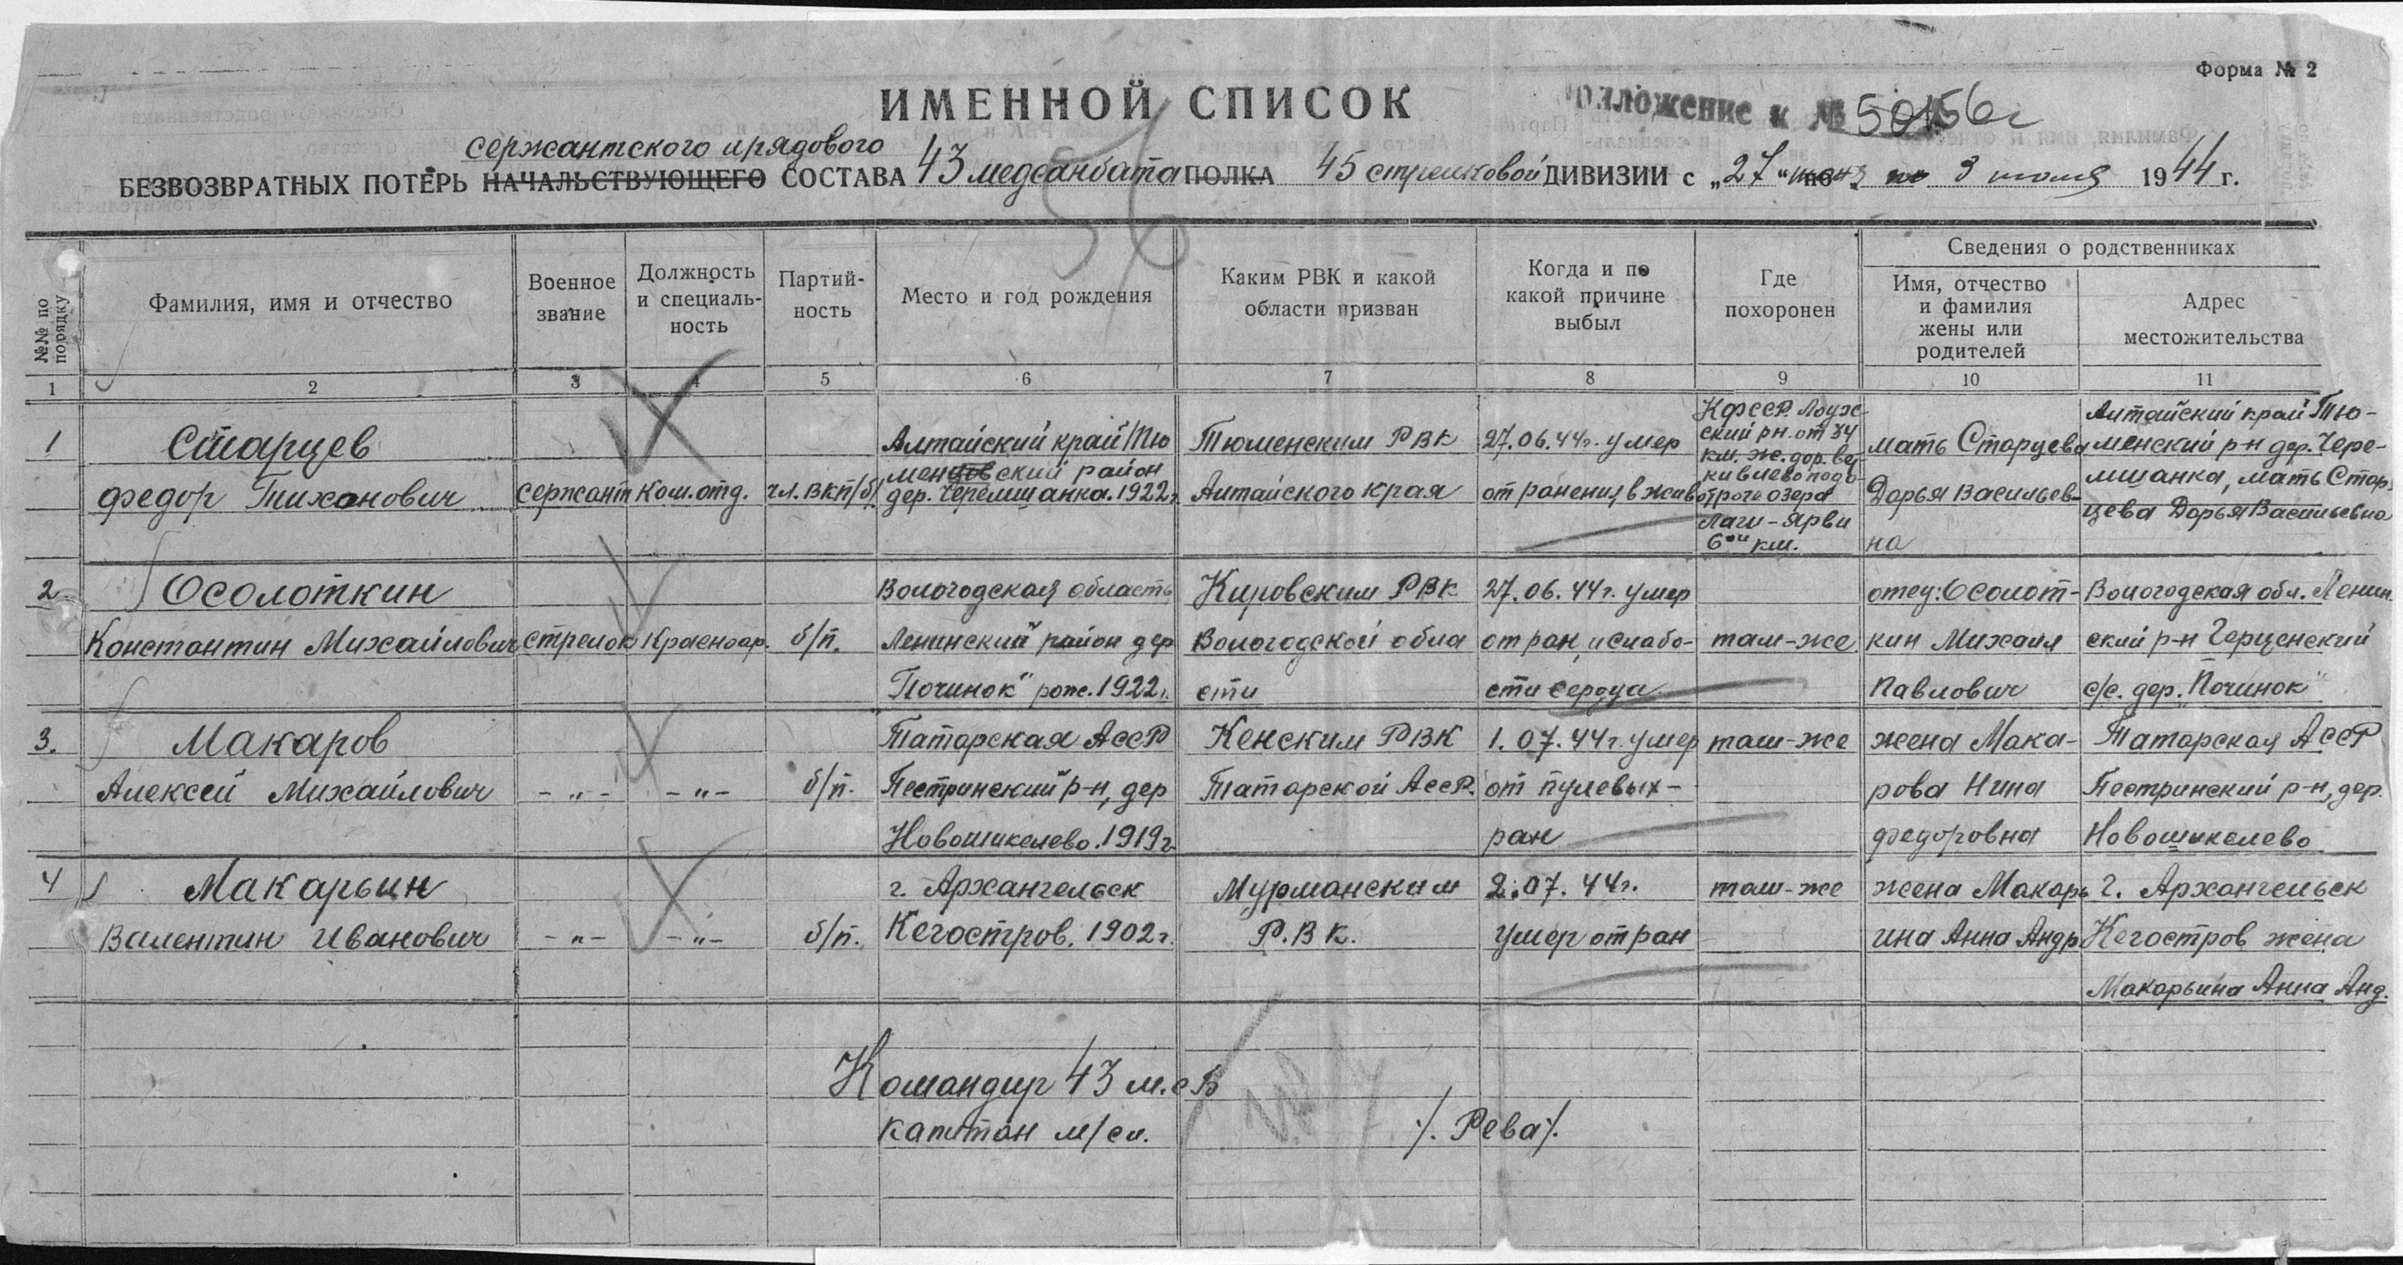 Форма № 2
ИМЕННОЙ СПИСОК
Приложение к № 50156с
сержантского и рядового
БЕЗВОЗВРАТНЫХ ПОТЕРЬ НАЧАЛЬСТВУЮЩЕГО СОСТАВА 43 медсанбата ПОЛКА 45 стрелковой ДИВИЗИИ с „27“ по 3 июля 1944 г.
56
№№ по порядку
Фамилия, имя и отчество
Военное звание
Должность и специаль-ность
Партий-ность
Место и год рождения
Каким РВК и какой области призван
Когда и по какой причине выбыл
Где похоронен
Сведения о родственниках
Имя, отчество и фамилия жены или родителей
Адрес местожительства
1 2 3 4 5 6 7 8 9 10 11
1
Старцев
Федор Тиханович
сержант
Ком. отд.
чл. ВКП/б/
Алтайский край Тю
менцовский район
дер. Черемшанка. 1922г.
Тюменским РВК
Алтайского края
27.06.44г. умер
от ранения в жив
КФССР. Лоухс-
ский рн. от 34
км. ж. дор. ве
отроге озера
Лаги-Ярви
6ой км.
мать Старцева
Дарья Васильев-
на
Алтайский край Тю-
менский р-н дер. Чере-
мшанка, мать Стар
цева Дарья Васильевна
2
Осолоткин
Константин Михайлович
стрелок
Красноар.
б/п.
Вологодская область
Ленинский район дер
"Починок" рож. 1922г.
Кировским РВК
Вологодской обла
сти
27.06.44г. умер
от ран, и слабо-
сти сердца
там-же
отец: Осолот-
кин Михаил
Павлович
Вологодская обл. Ленин.
ский р-н Герценский
с/с. дер. "Починок"
3.
Макаров
Алексей Михайлович
-"-
-"-
б/п.
Татарская АССР
Пестринский р-н, дер
Новошикелево. 1919г.
Кенским РВК
Татарской АССР.
1.07.44г. умер
от пулевых-
ран
там-же
жена Мака-
рова Нина
Федоровна
Татарская АССР
Пестринский р-н, дер.
Новошикелево
4
Макарьин
Валентин Иванович
-"-
-"-
б/п.
г. Архангельск
Кегостров. 1902г.
Мурманским
Р.В.К.
2.07.44г.
умер от ран
там-же
жена Макарь
ина Анна Андр
г. Архангельск
Кегостров жена
Макарьина Анна Анд.
Командир 43 м.с.б
капитан м/сл.
/. Рева/.